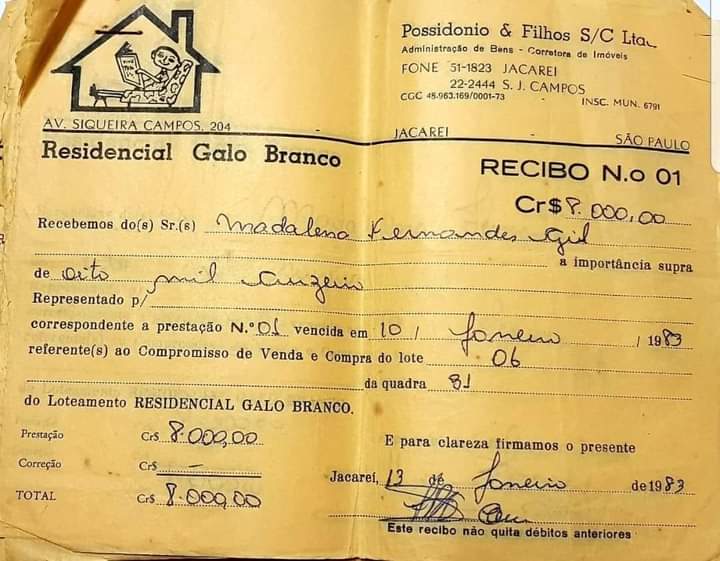 Possidonio & Filhos S/C Ltda
Administração de Bens - Corretora de Imóveis
FONE 51-1823 JACAREI
22-2444 S. J. CAMPOS
CGC 48.963.169/0001-73 INSC. MUN. 6791
AV. SIQUEIRA CAMPOS, 204 - JACAREI - SÃO PAULO
Residencial Galo Branco
RECIBO N.o 01
Cr$ 8.000,00
Recebemos do(s) Sr.(s) Madalena Fernandes Gil
a importância supra
de oito mil cruzeiro
Representado p/
correspondente a prestação N.º 01 vencida em 10 / Janeiro / 1983
referente(s) ao Compromisso de Venda e Compra do lote 06
da quadra 81
do Loteamento RESIDENCIAL GALO BRANCO.
Prestação Cr$ 8.000,00
E para clareza firmamos o presente
Correção Cr$ -
Jacareí, 13 de Janeiro de 1983
TOTAL Cr$ 8.000,00
Este recibo não quita débitos anteriores